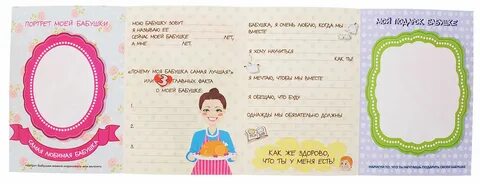 ПОРТРЕТ МОЕЙ БАБУШКИ
САМАЯ ЛЮБИМАЯ БАБУШКА
МОЮ БАБУШКУ ЗОВУТ
Я НАЗЫВАЮ ЕЕ
СЕЙЧАС МОЕЙ БАБУШКЕ ЛЕТ,
А МНЕ ЛЕТ.
"ПОЧЕМУ МОЯ БАБУШКА САМАЯ ЛУЧШАЯ?"
ИЛИ 3 ГЛАВНЫХ ФАКТА
О МОЕЙ БАБУШКЕ:
БАБУШКА, Я ОЧЕНЬ ЛЮБЛЮ, КОГДА МЫ
ВМЕСТЕ
Я ХОЧУ НАУЧИТЬСЯ
КАК ТЫ!
Я МЕЧТАЮ, ЧТОБЫ МЫ ВМЕСТЕ
Я ОБЕЩАЮ, ЧТО БУДУ
ОДНАЖДЫ МЫ ОБЯЗАТЕЛЬНО ДОЛЖНЫ
КАК ЖЕ ЗДОРОВО,
ЧТО ТЫ У МЕНЯ ЕСТЬ!
МОЙ ПОДАРОК БАБУШКЕ